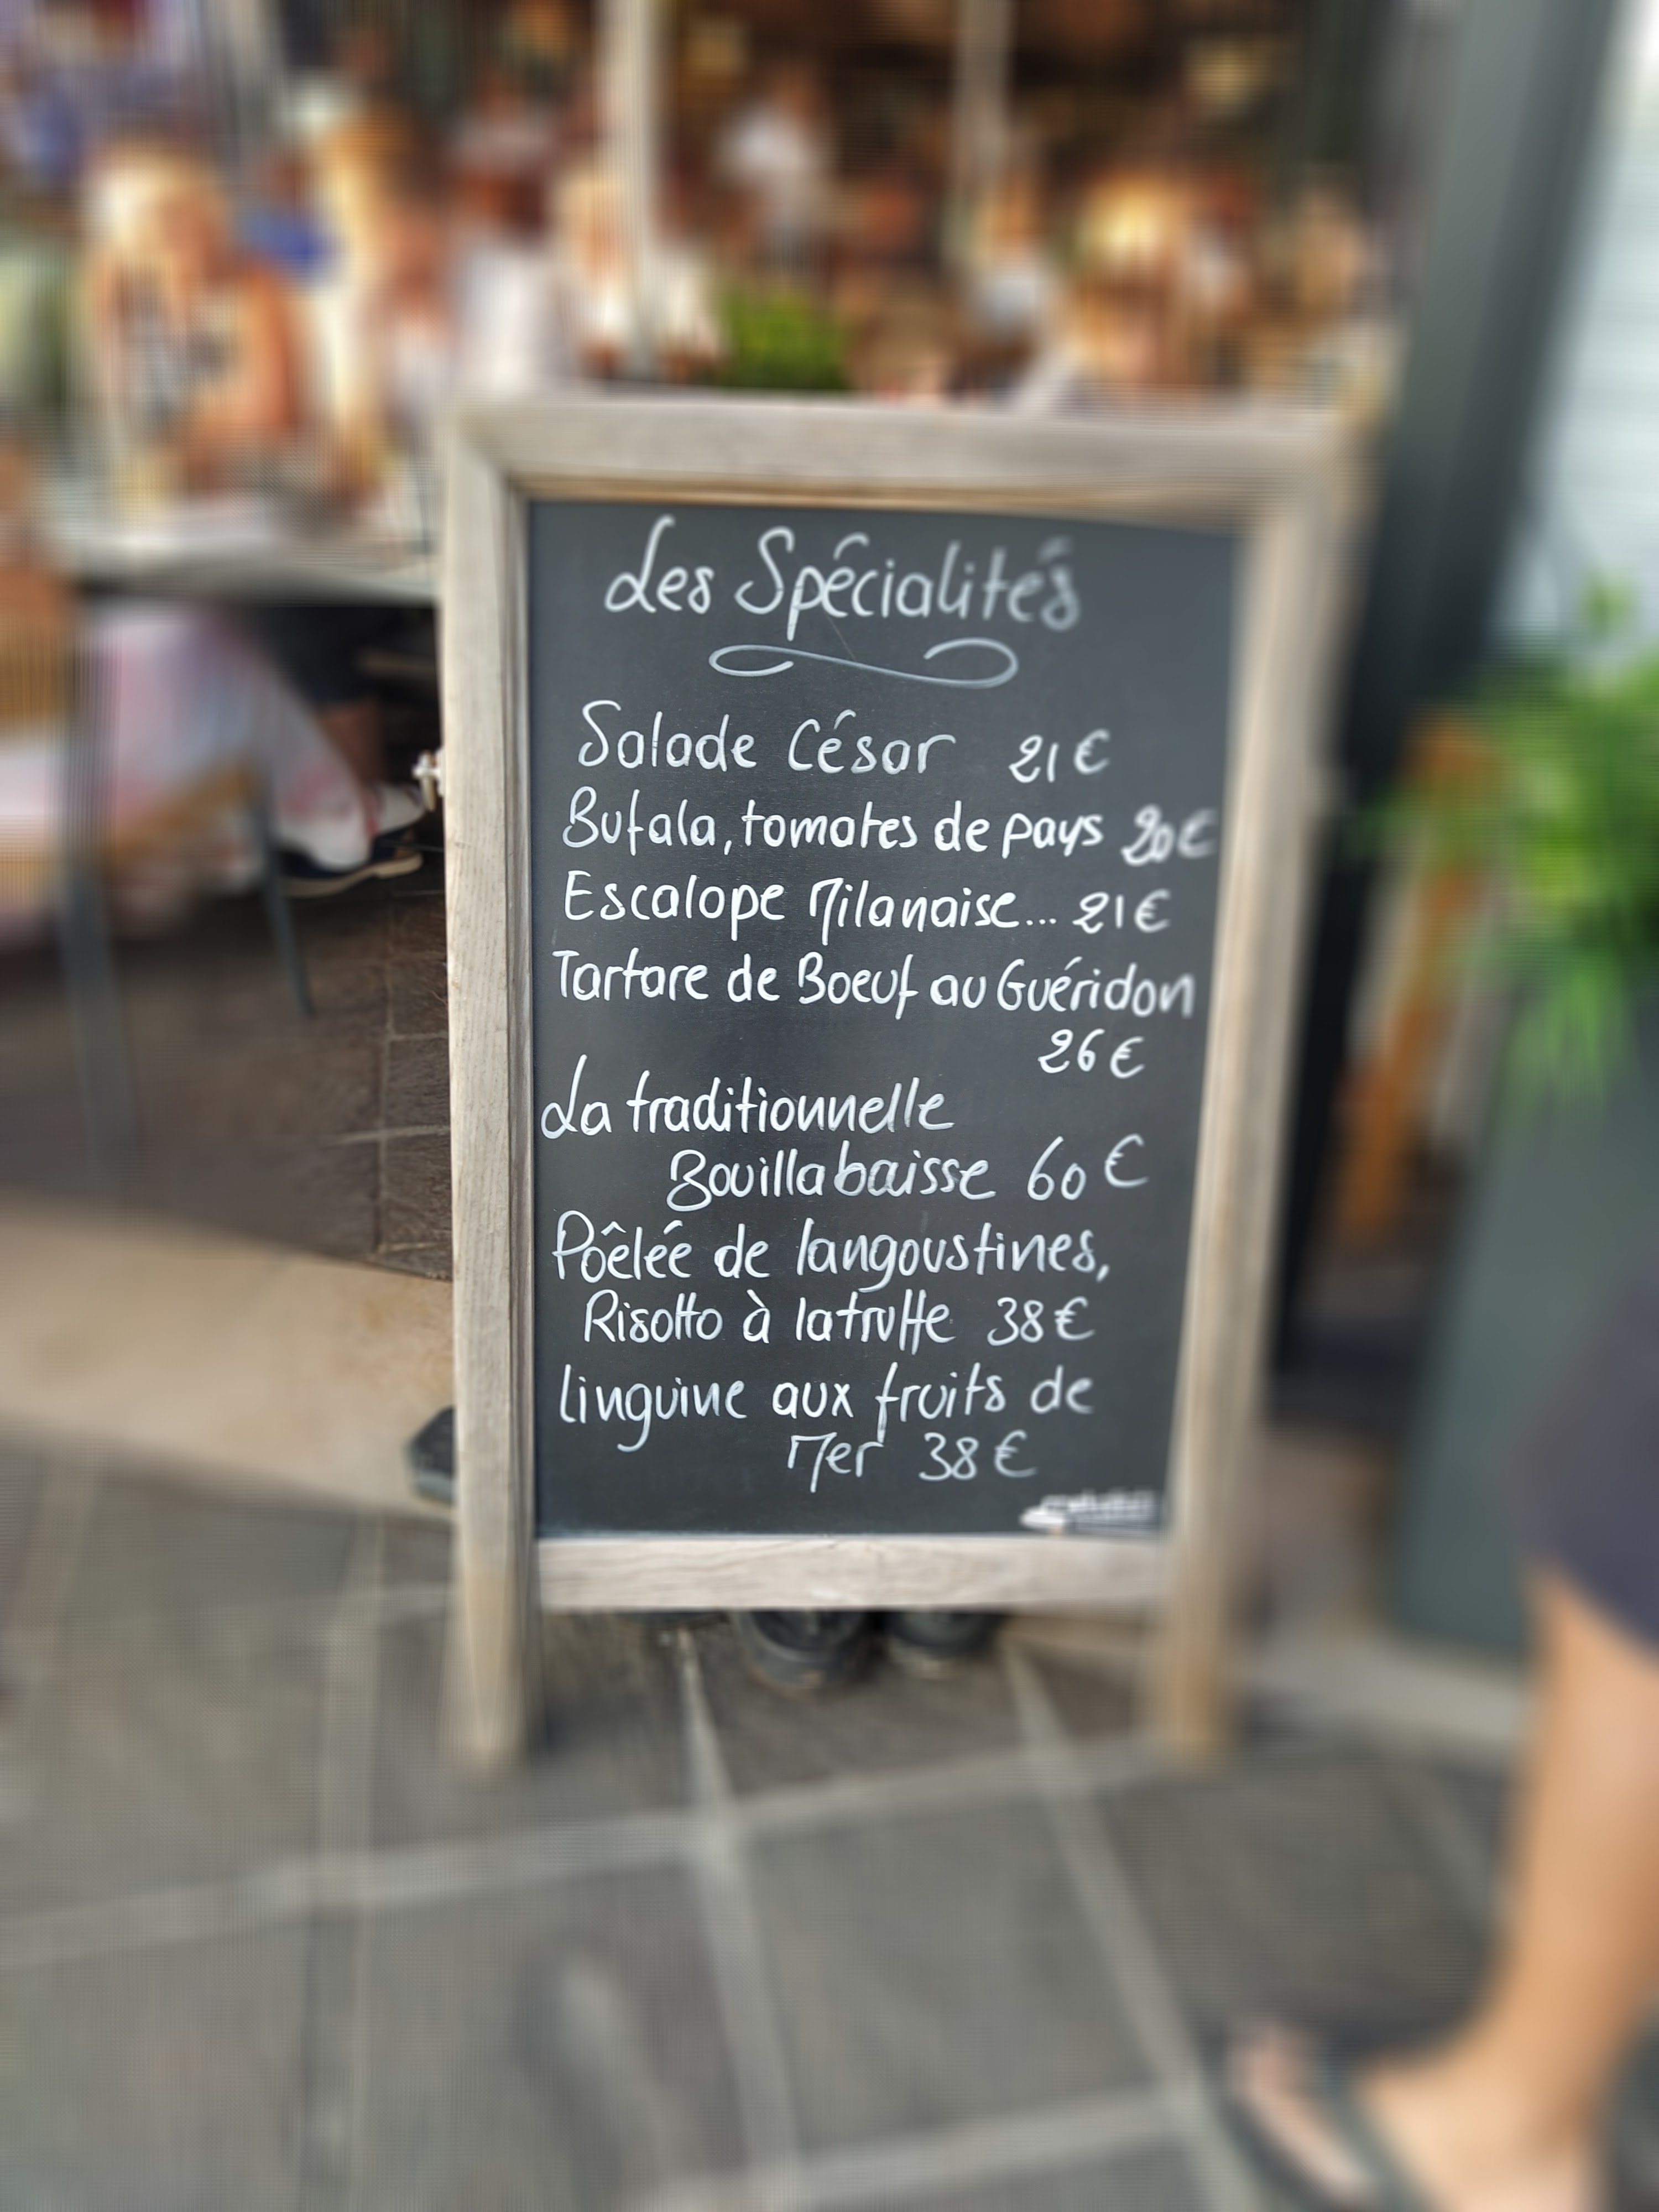 Les Spécialités
Salade César 21€
Bufala, tomates de pays 20€
Escalope Milanaise... 21€
Tartare de Boeuf au Guéridon
26€
La traditionnelle
Bouillabaisse 60€
Pôêlée de langoustines,
Risotto à la truffe 38€
linguine aux fruits de
Mer 38€